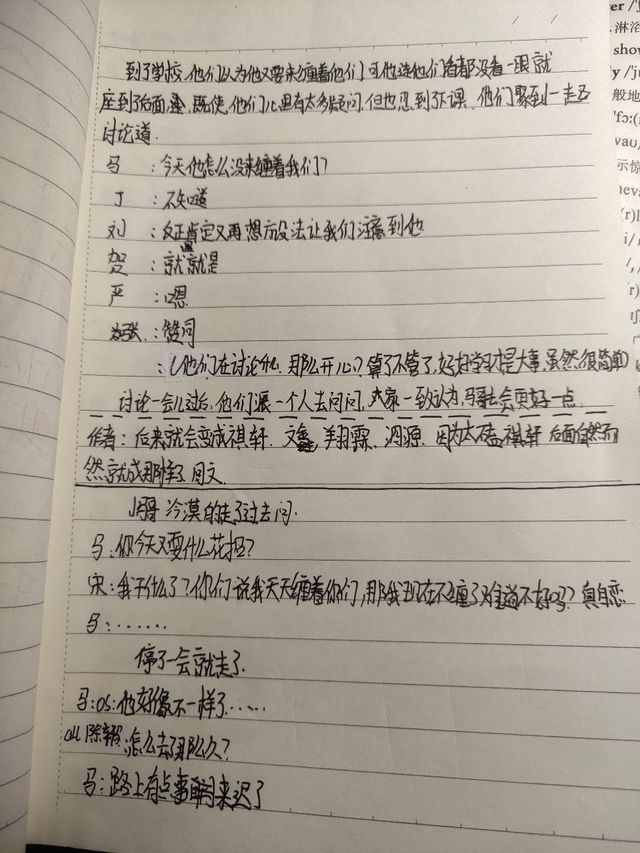 到了学校,他们以为他又要来缠着他们,可他连他们看都没看一眼就
座到了后面,既使,他们心里有太多疑问,但也忍到了下课,他们聚到一起
讨论道.
马:今天他怎么没来缠着我们?
丁:不知道
刘:反正肯定又再想方设法让我们注意到他
贺:就就是
严:嗯
张:赞同
:(他们在讨论什么,那么开心?算了不管了,好好学习才是大事,虽然很简单)
讨论一会儿过后,他们派一个人去问问,大家一致认为,马哥去会更好一点.
作者:后来就会变成祺轩.文、羊羽霖、泗源.因为太磕祺轩后面自然而
然就成那样了 回文
马哥冷漠的走了过去问.
马:你今天又耍什么花招?
宋:我干什么了?你们说我天天缠着你们,那我现在不缠了难道不好吗?真自恋
马:......
停了一会就走了.
马:os:他好像不一样了......
all 除:怎么去了那么久?
马:路上有点事来迟了
er /
淋浴
show
y /
般地
fɔ:(
vaʊ/
示惊
neva
(r)
i/